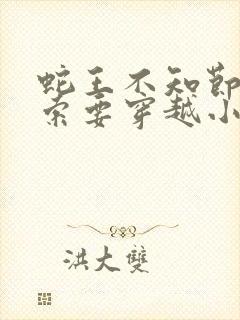 蛇王不知節
索要穿越小
洪大雙